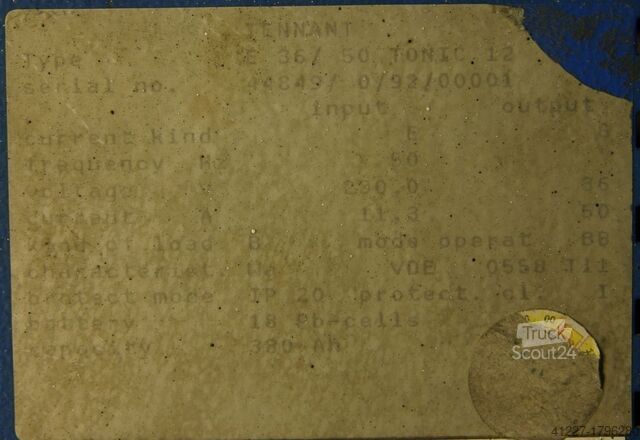 TENNANT
Type E 36/ 50 TONIC 12
serial no. 44849/ 0/92/00001
input output
current kind E G
frequency Hz 50
voltage V 230.0 36
current A 11.3 50
kind of load B mode operat. BB
characterist. Wa VDE 0558 T11
protect mode IP 20 protect. cl. I
battery 18 Pb-cells
capacity Ah
00
Truck
Scout24